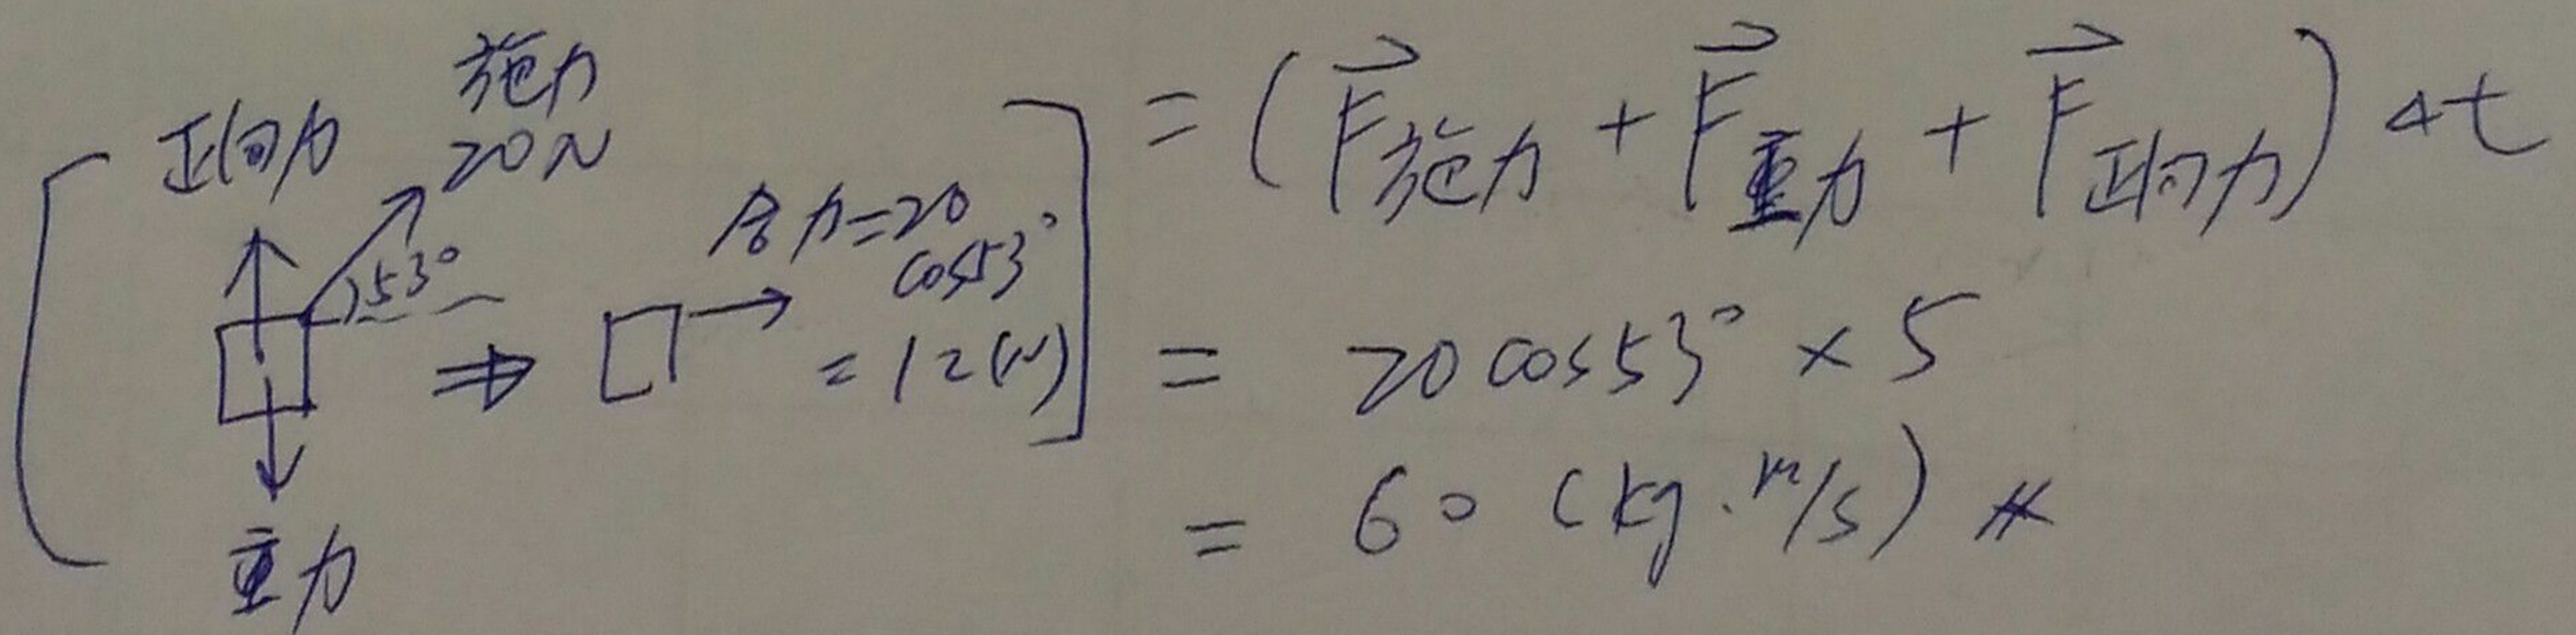 正向力
施力
20N
53°
重力
⇒
合力=20
cos53°
=12(N)
=(F⃗施力+F⃗重力+F⃗正向力)Δt
= 20 cos53° × 5
= 60 (kg·m/s) #